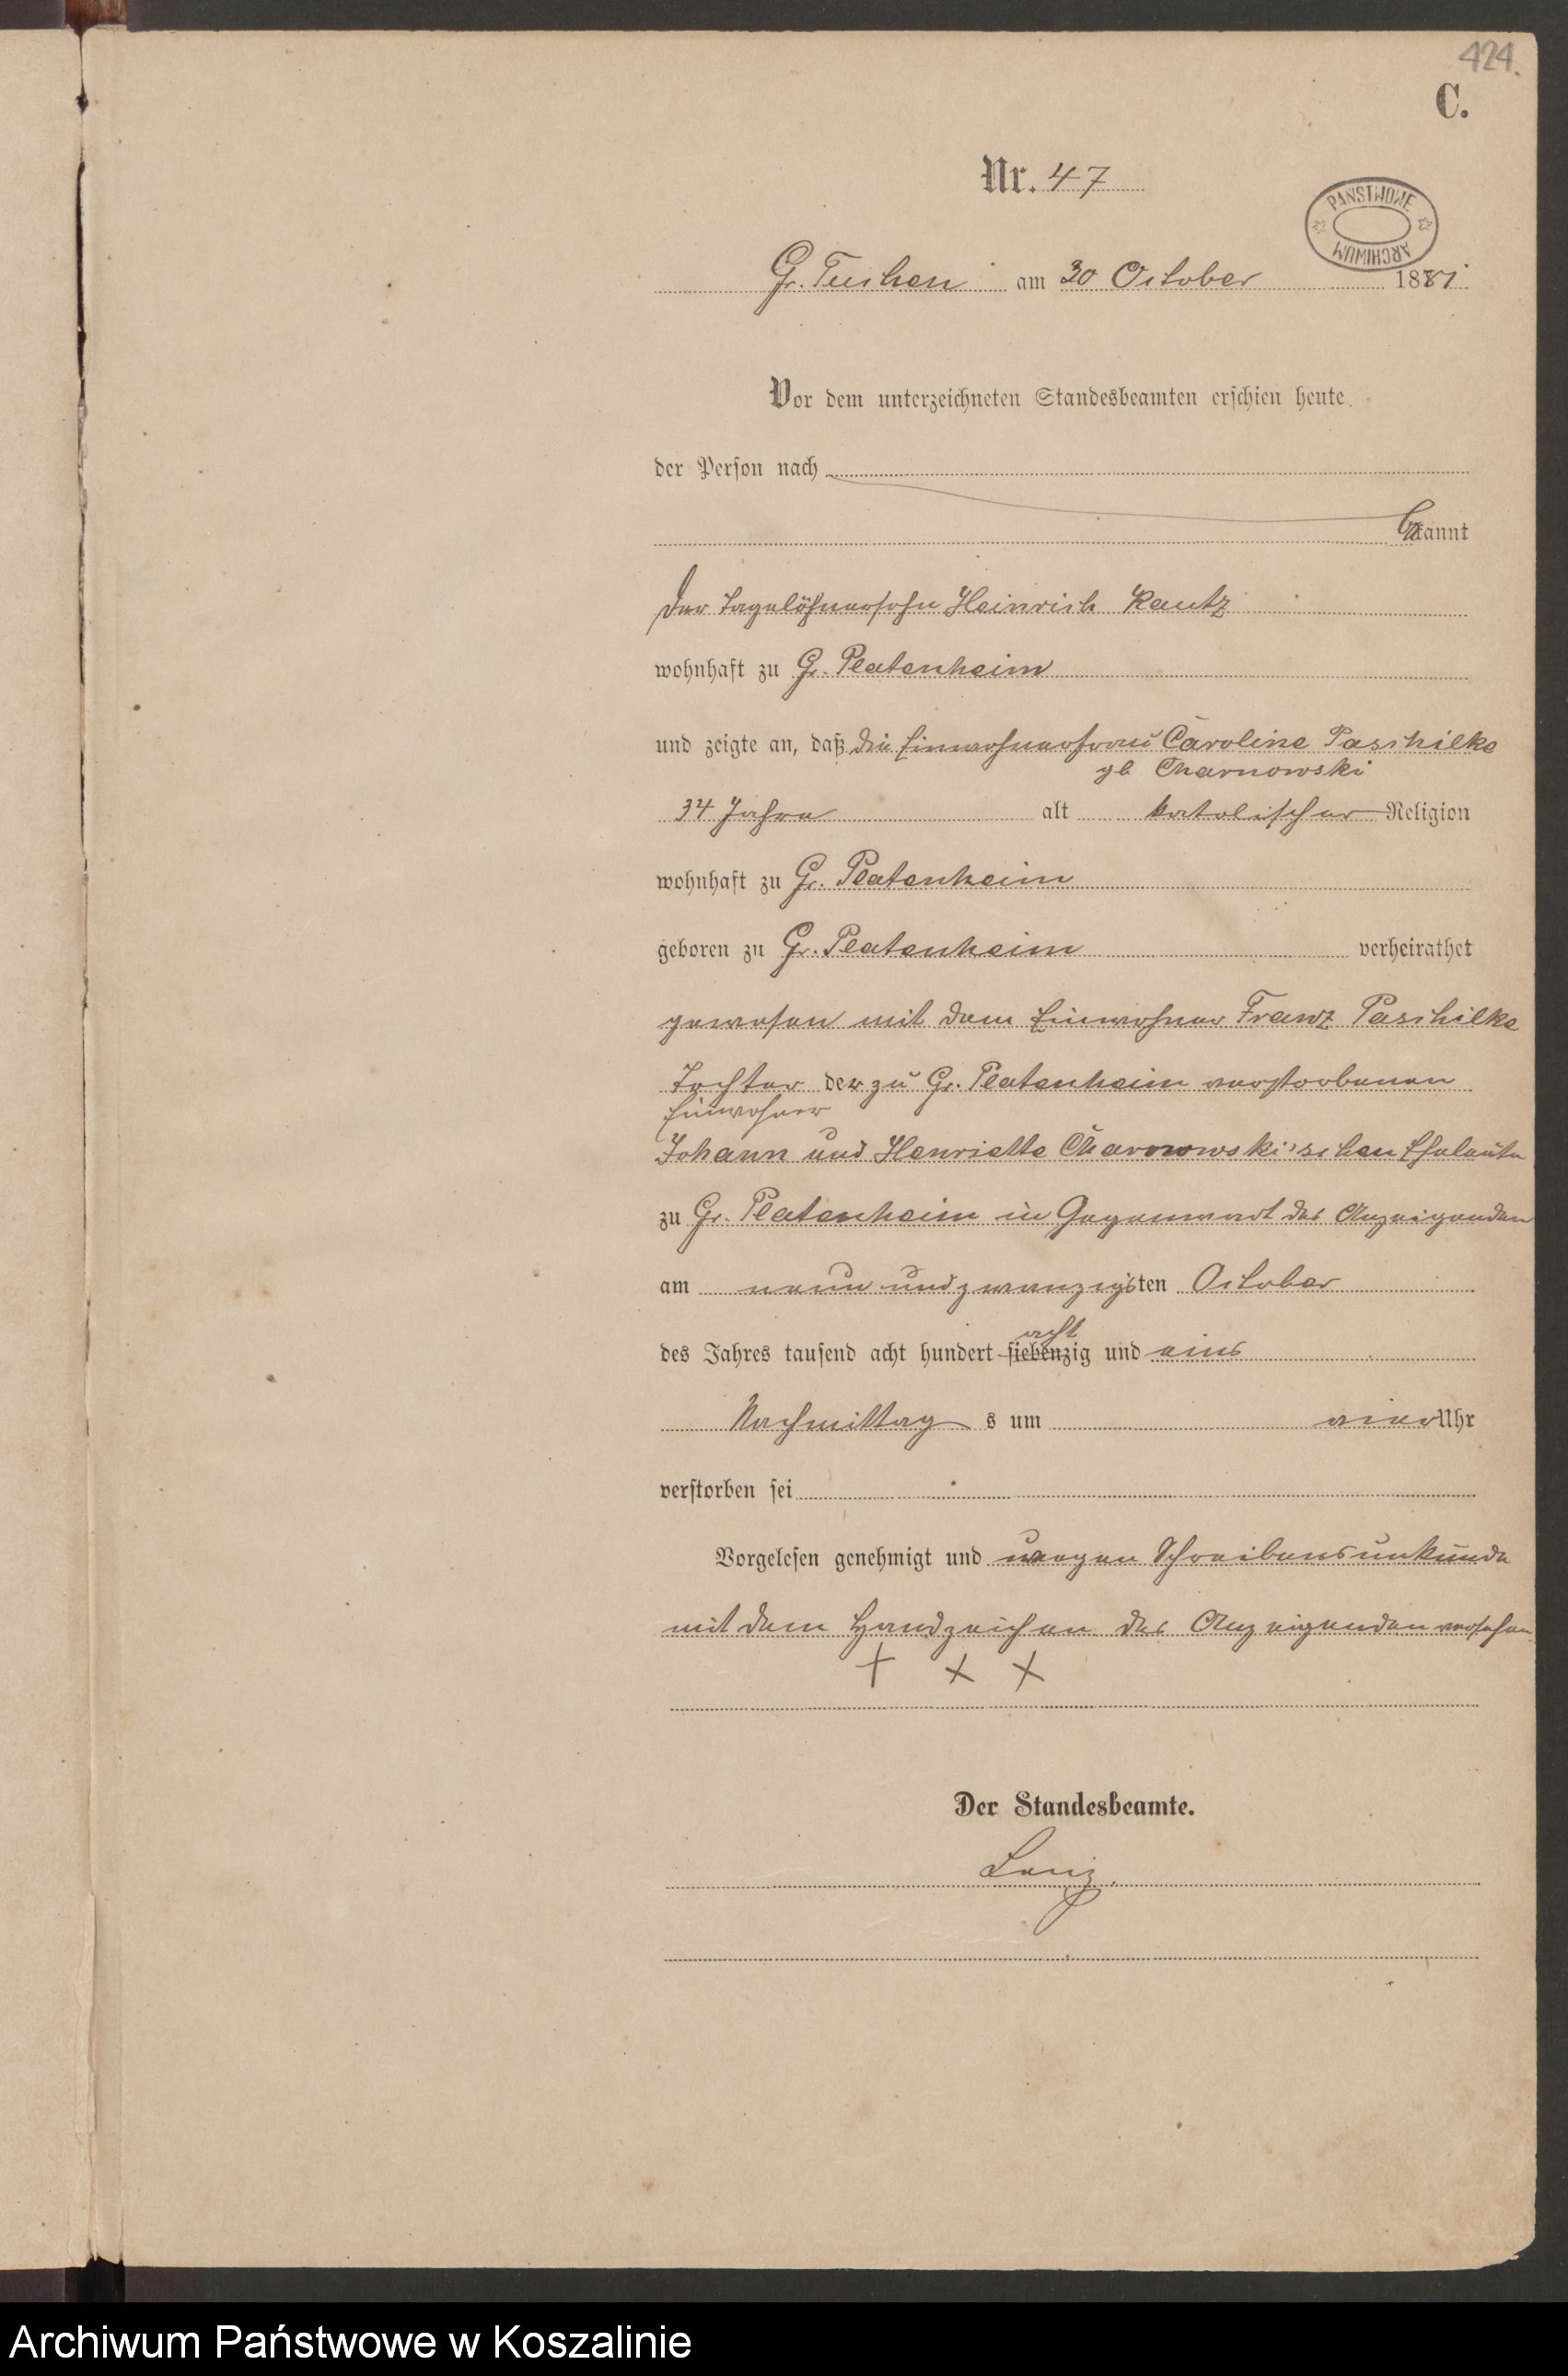 424.
C.
Nr. 47
PAŃSTWOWE ARCHIWUM
Gr. Tuchen am 30 October 1881
Vor dem unterzeichneten Standesbeamten erschien heute
der Person nach
bekannt
der Tagelöhnersohn Heinrich Kautz
wohnhaft zu Gr. Platenheim
und zeigte an, daß die Einwohnerfrau Caroline Paschilke
gb Charnowski
34 Jahre alt katolischer Religion
wohnhaft zu Gr. Platenheim
geboren zu Gr. Platenheim verheirathet
gewesen mit dem Einwohner Franz Paschilke
Tochter der zu Gr. Platenheim verstorbenen
Einwohner
Johann und Henriette Charnowski'schen Eheleute
zu Gr. Platenheim in Gegenwart des Anzeigenden
am neun und zwanzigsten October
acht
des Jahres tausend acht hundert siebenzig und eins
Nachmittag s um einer Uhr
verstorben sei
Vorgelesen genehmigt und wegen Schreibensunkunde
mit dem Handzeichen des Anzeigenden versehen
+ + +
Der Standesbeamte.
Archiwum Państwowe w Koszalinie